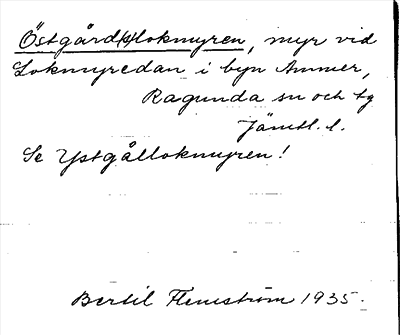 Östgård(s)lokmyren, myr vid
Lokmyredan i byn Ammer,
Ragunda sn och tg
Jämtl. l.
Se Ystgålloknmyren!
Bertil Flemström 1935.